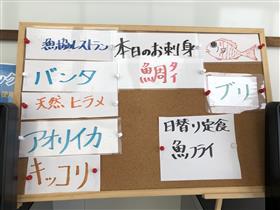 漁協レストラン
本日のお刺身
バンタ
鯛
タイ
ブリ
天然ヒラメ
アオリイカ
日替り定食
魚フライ
キッコリ